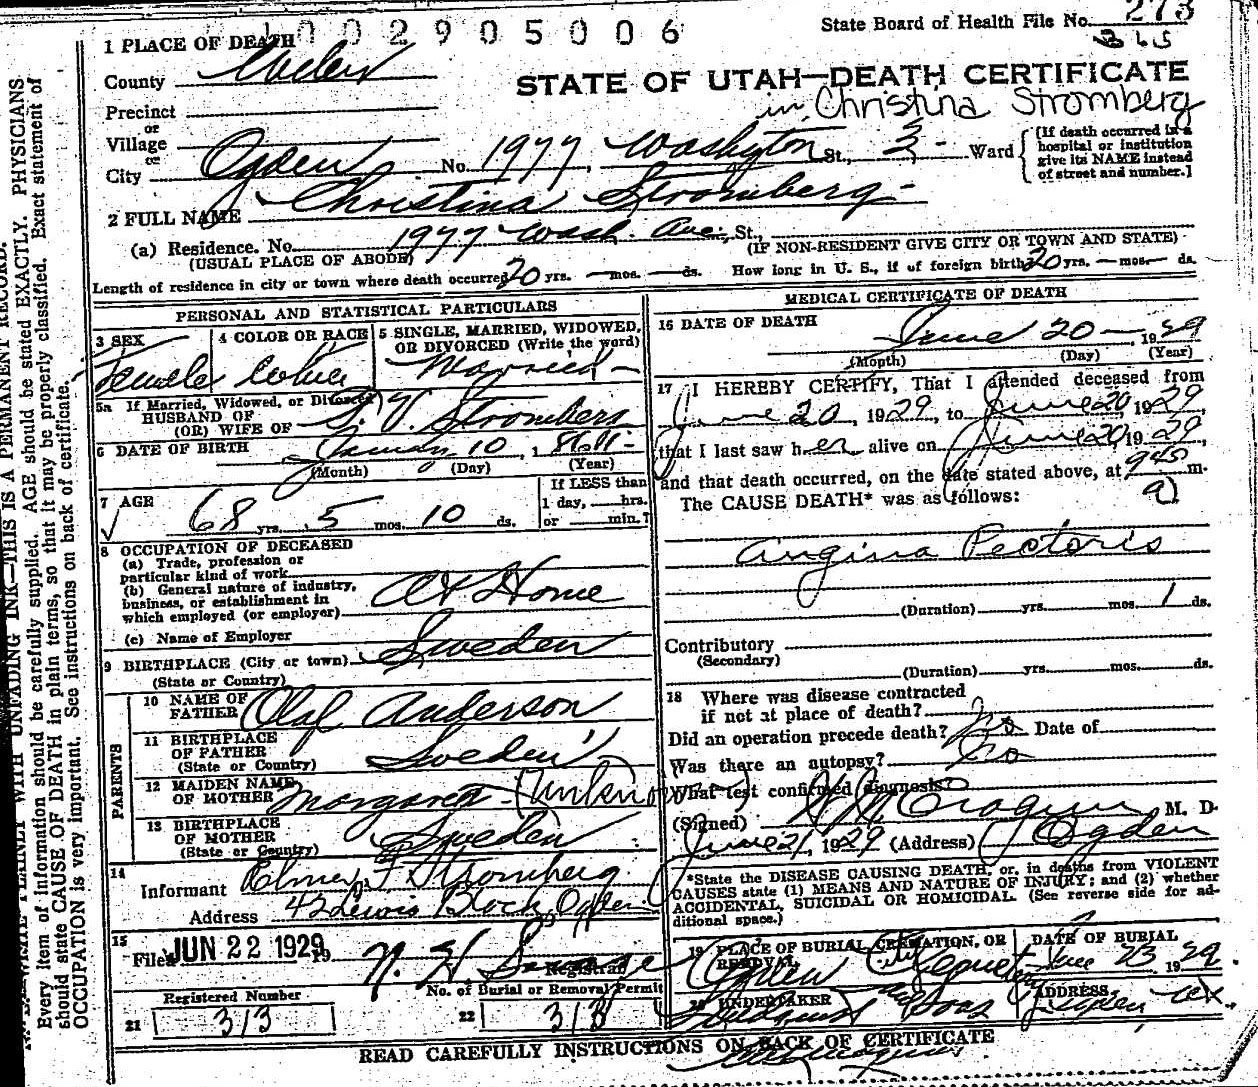 002905006
State Board of Health File No. 273
365
1 PLACE OF DEATH
County Weber
STATE OF UTAH—DEATH CERTIFICATE
Christina Stromberg
Precinct
or
Village
or
City Ogden No. 1977 Washington St., 3 Ward
[If death occurred in a
hospital or institution
give its NAME instead
of street and number.]
2 FULL NAME Christina Stromberg
(a) Residence. No. 1977 Wash. Ave. St.,
(USUAL PLACE OF ABODE) (IF NON-RESIDENT GIVE CITY OR TOWN AND STATE)
Length of residence in city or town where death occurred 20 yrs. — mos. — ds. How long in U. S., if of foreign birth 20 yrs. — mos. — ds.
PERSONAL AND STATISTICAL PARTICULARS
3 SEX
Female
4 COLOR OR RACE
White
5 SINGLE, MARRIED, WIDOWED,
OR DIVORCED (Write the word)
Married
5a If Married, Widowed, or Divorced
HUSBAND OF
(OR) WIFE OF Stromberg
6 DATE OF BIRTH January 10, 1861
(Month) (Day) (Year)
7 AGE
68 yrs. 5 mos. 10 ds.
If LESS than
1 day, hrs.
or min.?
8 OCCUPATION OF DECEASED
(a) Trade, profession or
particular kind of work
(b) General nature of industry,
business, or establishment in
which employed (or employer) At Home
(c) Name of Employer
9 BIRTHPLACE (City or town) Sweden
(State or Country)
PARENTS
10 NAME OF
FATHER Olof Anderson
11 BIRTHPLACE
OF FATHER
(State or Country) Sweden
12 MAIDEN NAME
OF MOTHER Margaret (Unknown)
13 BIRTHPLACE
OF MOTHER
(State or Country) Sweden
14
Informant Elmer F Stromberg
Address 42 Lewis Block Ogden
15
Filed JUN 22 1929 19 N. H. Savage
Registrar
Registered Number
21 313
No. of Burial or Removal Permit
22 313
MEDICAL CERTIFICATE OF DEATH
16 DATE OF DEATH
June 20 — 1929
(Month) (Day) (Year)
17 I HEREBY CERTIFY, That I attended deceased from
June 20, 1929, to June 20, 1929,
that I last saw her alive on June 20 1929,
and that death occurred, on the date stated above, at 940 m.
The CAUSE DEATH* was as follows:
Angina Pectoris
(Duration) yrs. mos. 1 ds.
Contributory
(Secondary)
(Duration) yrs. mos. ds.
18 Where was disease contracted
if not at place of death?
Did an operation precede death? No Date of
Was there an autopsy? No
What test confirmed diagnosis?
(Signed) M. D.
June 21, 1929 (Address) Ogden
*State the DISEASE CAUSING DEATH, or, in deaths from VIOLENT
CAUSES state (1) MEANS AND NATURE OF INJURY; and (2) whether
ACCIDENTAL, SUICIDAL OR HOMICIDAL. (See reverse side for ad-
ditional space.)
19 PLACE OF BURIAL, CREMATION, OR
REMOVAL
Ogden City
DATE OF BURIAL
June 23 1929.
20 UNDERTAKER
Lindquist and Sons
ADDRESS
Ogden
READ CAREFULLY INSTRUCTIONS ON BACK OF CERTIFICATE
WRITE PLAINLY WITH UNFADING INK—THIS IS A PERMANENT RECORD.
Every item of information should be carefully supplied. AGE should be stated EXACTLY. PHYSICIANS
should state CAUSE OF DEATH in plain terms, so that it may be properly classified. Exact statement of
OCCUPATION is very important. See instructions on back of certificate.